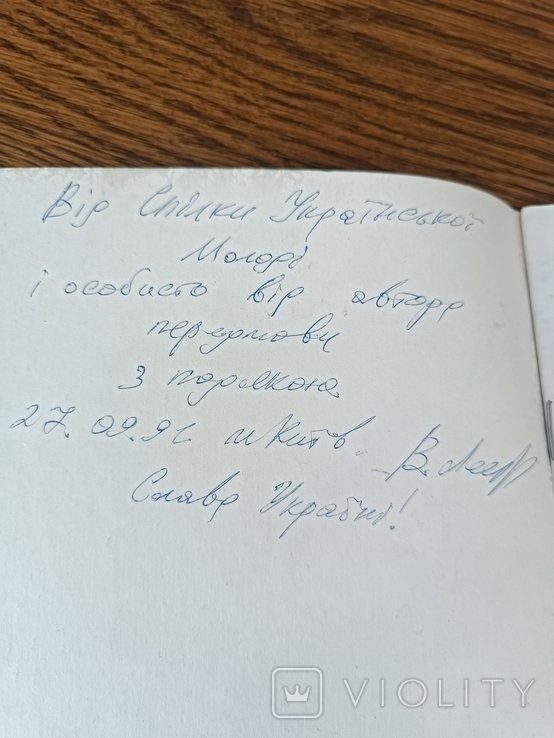 Від Спілки Української
Молоді
і особисто від автора
передмови
З подякою
27.09.91. м Київ.
Слава Україні!
VIOLITY